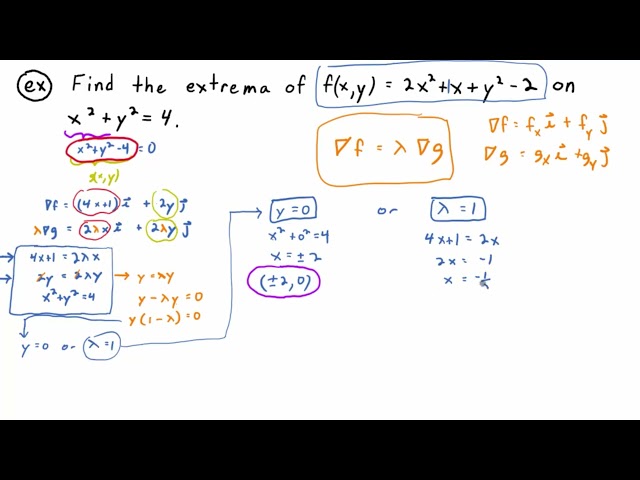 ex Find the extrema of f(x,y) = 2x² + x + y² - 2 on
x² + y² = 4.
x² + y² - 4 = 0
g(x,y)
∇f = λ ∇g
∇f = f_x i⃗ + f_y j⃗
∇g = g_x i⃗ + g_y j⃗
∇f = (4x+1) i⃗ + 2y j⃗
λ∇g = 2λx i⃗ + 2λy j⃗
4x+1 = 2λx
2y = 2λy
x² + y² = 4
y = λy
y - λy = 0
y(1-λ) = 0
y=0 or λ=1
y=0 or λ=1
x² + 0² = 4
x = ±2
(±2, 0)
4x+1 = 2x
2x = -1
x = -1/